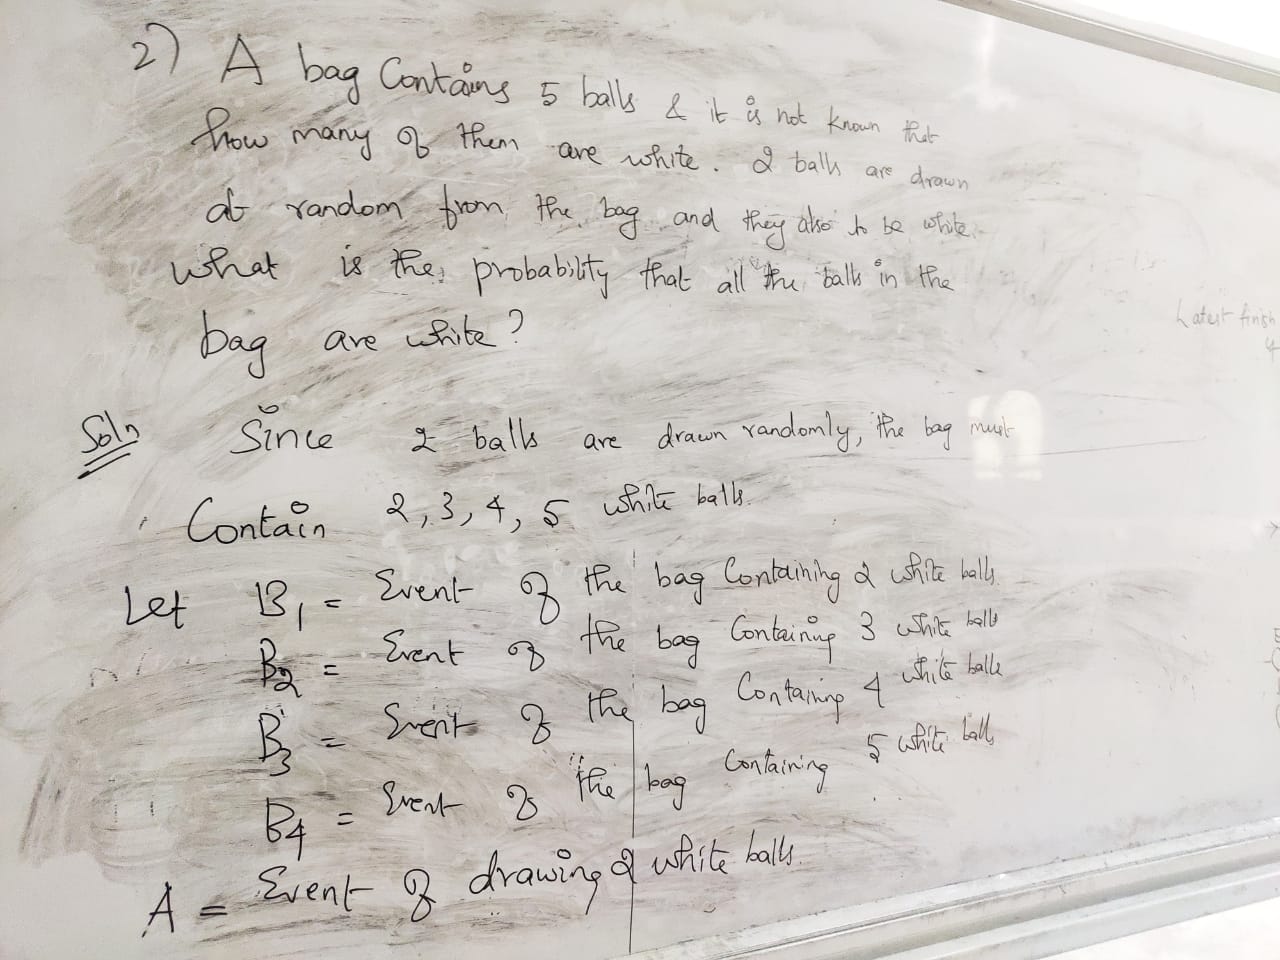 2) A bag Contains 5 balls & it is not known that
how many of them are white. 2 balls are drawn
at random from the bag and they also to be white.
what is the probability that all the balls in the
bag are white?
Latest finish
4
Soln Since 2 balls are drawn randomly, the bag must
Contain 2, 3, 4, 5 white balls.
Let B1 = Event of the bag Containing 2 white balls.
B2 = Event of the bag Containing 3 white balls
B3 = Event of the bag Containing 4 white balls
B4 = Event of the bag Containing 5 white balls
A = Event of drawing 2 white balls.